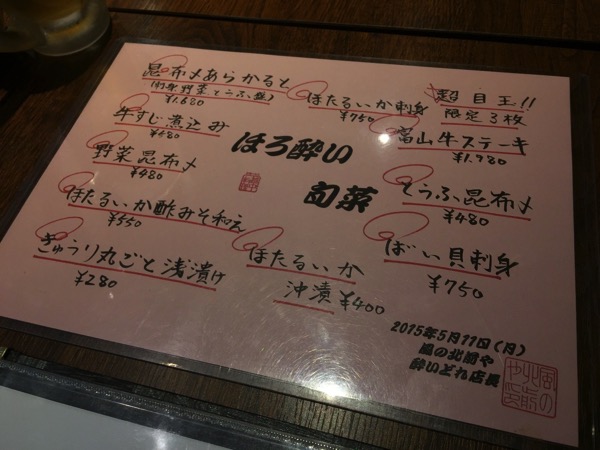 昆布〆あらかると
(刺身野菜とうふ盛)
¥1.680
牛すじ煮込み
¥480
野菜昆布〆
¥480
ほたるいか酢みそ和え
¥550
きゅうり丸ごと浅漬け
¥280
ほたるいか刺身
¥750
ほろ酔い
旬菜
ほたるいか
沖漬 ¥400
超目玉!!
限定3枚
富山牛ステーキ
¥1.980
とうふ昆布〆
¥480
ばい貝刺身
¥750
2015年5月11日(月)
風の北前や
酔いどれ店長